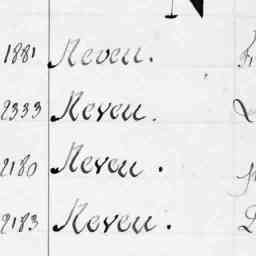 1881 Neveu.
2333 Neveu.
2180 Neveu.
2183 Neveu.